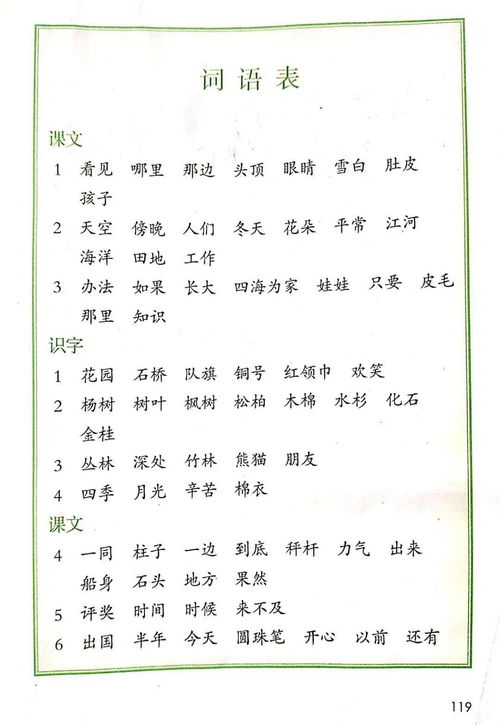 词语表
课文
1 看见 哪里 那边 头顶 眼睛 雪白 肚皮
孩子
2 天空 傍晚 人们 冬天 花朵 平常 江河
海洋 田地 工作
3 办法 如果 长大 四海为家 娃娃 只要 皮毛
那里 知识
识字
1 花园 石桥 队旗 铜号 红领巾 欢笑
2 杨树 树叶 枫树 松柏 木棉 水杉 化石
金桂
3 丛林 深处 竹林 熊猫 朋友
4 四季 月光 辛苦 棉衣
课文
4 一同 柱子 一边 到底 秤杆 力气 出来
船身 石头 地方 果然
5 评奖 时间 时候 来不及
6 出国 半年 今天 圆珠笔 开心 以前 还有
119